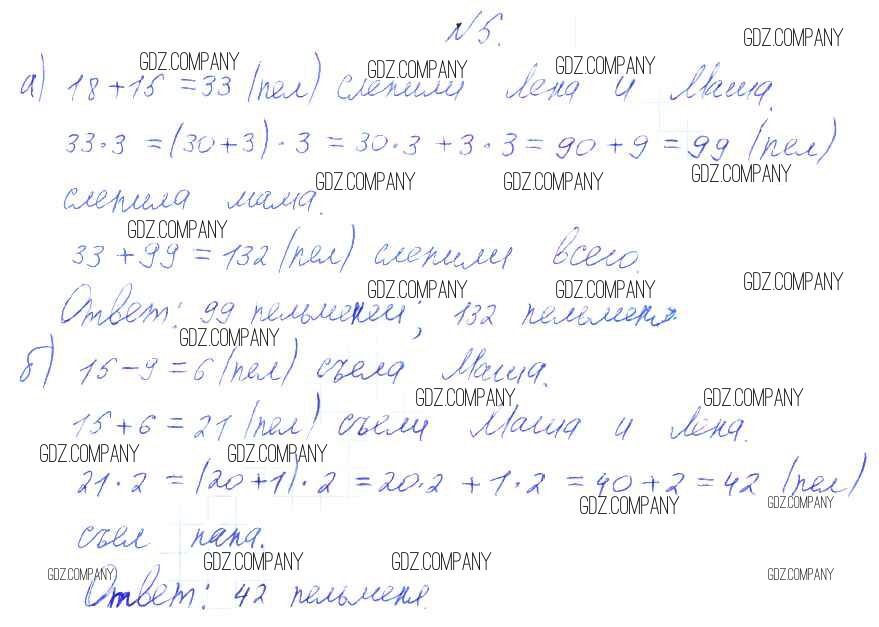 №5.
GDZ.COMPANY
GDZ.COMPANY GDZ.COMPANY GDZ.COMPANY
а) 18 + 15 = 33 (пел) слепили Лена и Маша.
33 · 3 = (30 + 3) · 3 = 30 · 3 + 3 · 3 = 90 + 9 = 99 (пел)
GDZ.COMPANY GDZ.COMPANY GDZ.COMPANY
слепила мама.
GDZ.COMPANY
33 + 99 = 132 (пел) слепили всего.
GDZ.COMPANY GDZ.COMPANY GDZ.COMPANY
Ответ: 99 пельменей; 132 пельменя.
GDZ.COMPANY
б) 15 - 9 = 6 (пел) съела Маша.
GDZ.COMPANY GDZ.COMPANY
15 + 6 = 21 (пел) съели Маша и Лена.
GDZ.COMPANY GDZ.COMPANY
21 · 2 = (20 + 1) · 2 = 20 · 2 + 1 · 2 = 40 + 2 = 42 (пел)
GDZ.COMPANY GDZ.COMPANY
съел папа.
GDZ.COMPANY GDZ.COMPANY
GDZ.COMPANY GDZ.COMPANY
Ответ: 42 пельменя.